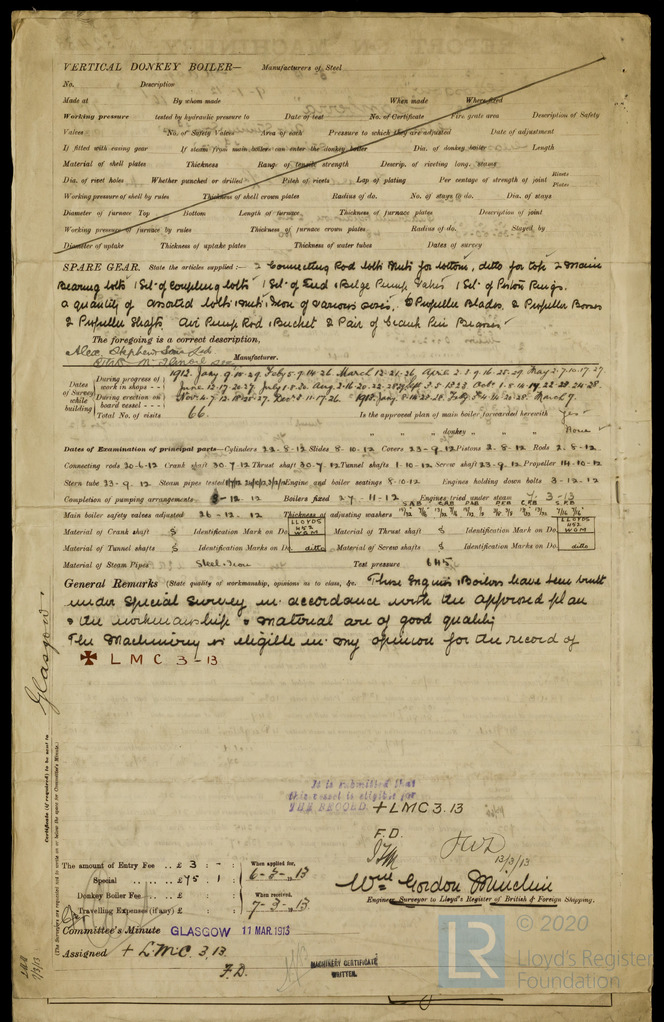 VERTICAL DONKEY BOILER— Manufacturers of Steel
No. Description
Made at By whom made When made Where fixed
Working pressure tested by hydraulic pressure to Date of test No. of Certificate Fire grate area Description of Safety
Valves No. of Safety Valves Area of each Pressure to which they are adjusted Date of adjustment
If fitted with easing gear If steam from main boilers can enter the donkey boiler Dia. of donkey boiler Length
Material of shell plates Thickness Range of tensile strength Descrip. of riveting long. seams
Dia. of rivet holes Whether punched or drilled Pitch of rivets Lap of plating Per centage of strength of joint Rivets Plates
Working pressure of shell by rules Thickness of shell crown plates Radius of do. No. of stays to do. Dia. of stays
Diameter of furnace Top Bottom Length of furnace Thickness of furnace plates Description of joint
Working pressure of furnace by rules Thickness of furnace crown plates Radius of do. Stayed by
Diameter of uptake Thickness of uptake plates Thickness of water tubes Dates of survey
SPARE GEAR. State the articles supplied:— 2 Connecting Rod bolts & nuts for bottom, ditto for top 2 Main
Bearing bolts 1 Set of Coupling bolts 1 Set of Feed & Bilge Pump Valves 1 Set of Piston Rings.
a quantity of assorted bolts & nuts, Iron of various sizes, Propeller Blades. 2 Propeller Bosses
2 Propeller Shafts, Air Pump Rod & Bucket & Pair of Crank Pin Brasses
The foregoing is a correct description,
Alex. Stephen & Sons Ltd
Manufacturer.
Dates of Survey while building
During progress of work in shops - -
During erection on board vessel - - -
Total No. of visits 66.
Is the approved plan of main boiler forwarded herewith Yes
" " " donkey " " " None
Dates of Examination of principal parts—Cylinders 22-8-12 Slides 8-10-12 Covers 23-9-12 Pistons 2-8-12 Rods 2-8-12
Connecting rods 20-6-12 Crank shaft 30-7-12 Thrust shaft 30-7-12 Tunnel shafts 1-10-12 Screw shaft 23-9-12 Propeller 14-10-12
Stern tube 23-9-12 Steam pipes tested Engine and boiler seatings 8-10-12 Engines holding down bolts 3-12-12
Completion of pumping arrangements -12-12 Boilers fixed 27-11-12 Engines tried under steam 7-3-13
Main boiler safety valves adjusted 26-12-12 Thickness of adjusting washers
Material of Crank shaft S Identification Mark on Do. LLOYDS 452 WGM Material of Thrust shaft S Identification Mark on Do. LLOYDS 452 WGM
Material of Tunnel shafts S Identification Marks on Do. ditto Material of Screw shafts S Identification Marks on Do. ditto
Material of Steam Pipes Steel & Iron Test pressure 645
General Remarks (State quality of workmanship, opinions as to class, &c. These Engines & Boilers have been built
under special survey in accordance with the approved plan
& the workmanship & material are of good quality
The Machinery is eligible in my opinion for the record of
✠ L M C 3-13
Glasgow.
Certificate (if required) to be sent to
(The Surveyors are requested not to write on or below the space for Committee's Minute.)
It is submitted that
this vessel is eligible for
THE RECORD. + LMC 3.13
F.D.
13/3/13
The amount of Entry Fee .. £ 3 : - :
Special .. .. £75 : 1 :
Donkey Boiler Fee .. £ : :
Travelling Expenses (if any) £ : :
When applied for, 6-3-13
When received, 7-3-13
Wm Gordon Minchin
Engineer Surveyor to Lloyd's Register of British & Foreign Shipping.
Committee's Minute GLASGOW 11 MAR. 1913
Assigned + LMC 3,13
F.D.
MACHINERY CERTIFICATE
WRITTEN.
© 2020
LR
Lloyd's Register
Foundation